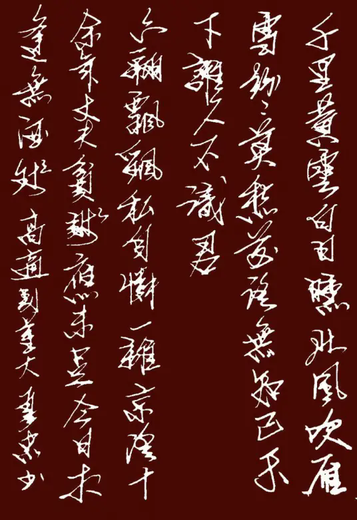 千里黄雲白日曛北風吹雁
雪紛々莫愁前路無知己天
下誰人不識君
六翮飄飄私自憐一離京洛十
余年丈夫貧賤應未足今日相
逢無酒錢 高適别董大 书